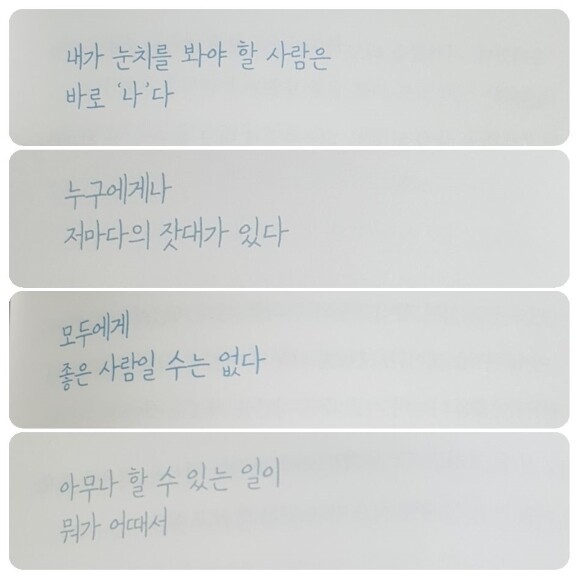 내가 눈치를 봐야 할 사람은
바로 ‘나’다
누구에게나
저마다의 잣대가 있다
모두에게
좋은 사람일 수는 없다
아무나 할 수 있는 일이
뭐가 어때서